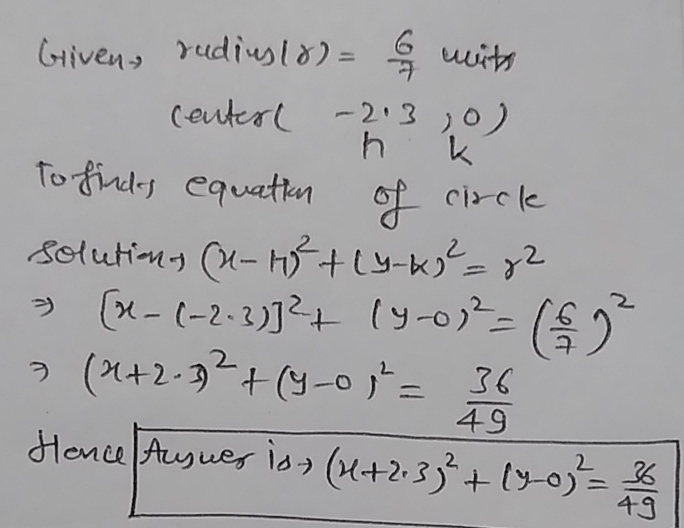 Given→ radius(r) = 6/7 units
center( -2.3 , 0)
h k
To find→ equation of circle
Solution→ (x-h)² + (y-k)² = r²
⇒ [x-(-2.3)]² + (y-0)² = (6/7)²
⇒ (x+2.3)² + (y-0)² = 36/49
Hence Answer is→ (x+2.3)² + (y-0)² = 36/49